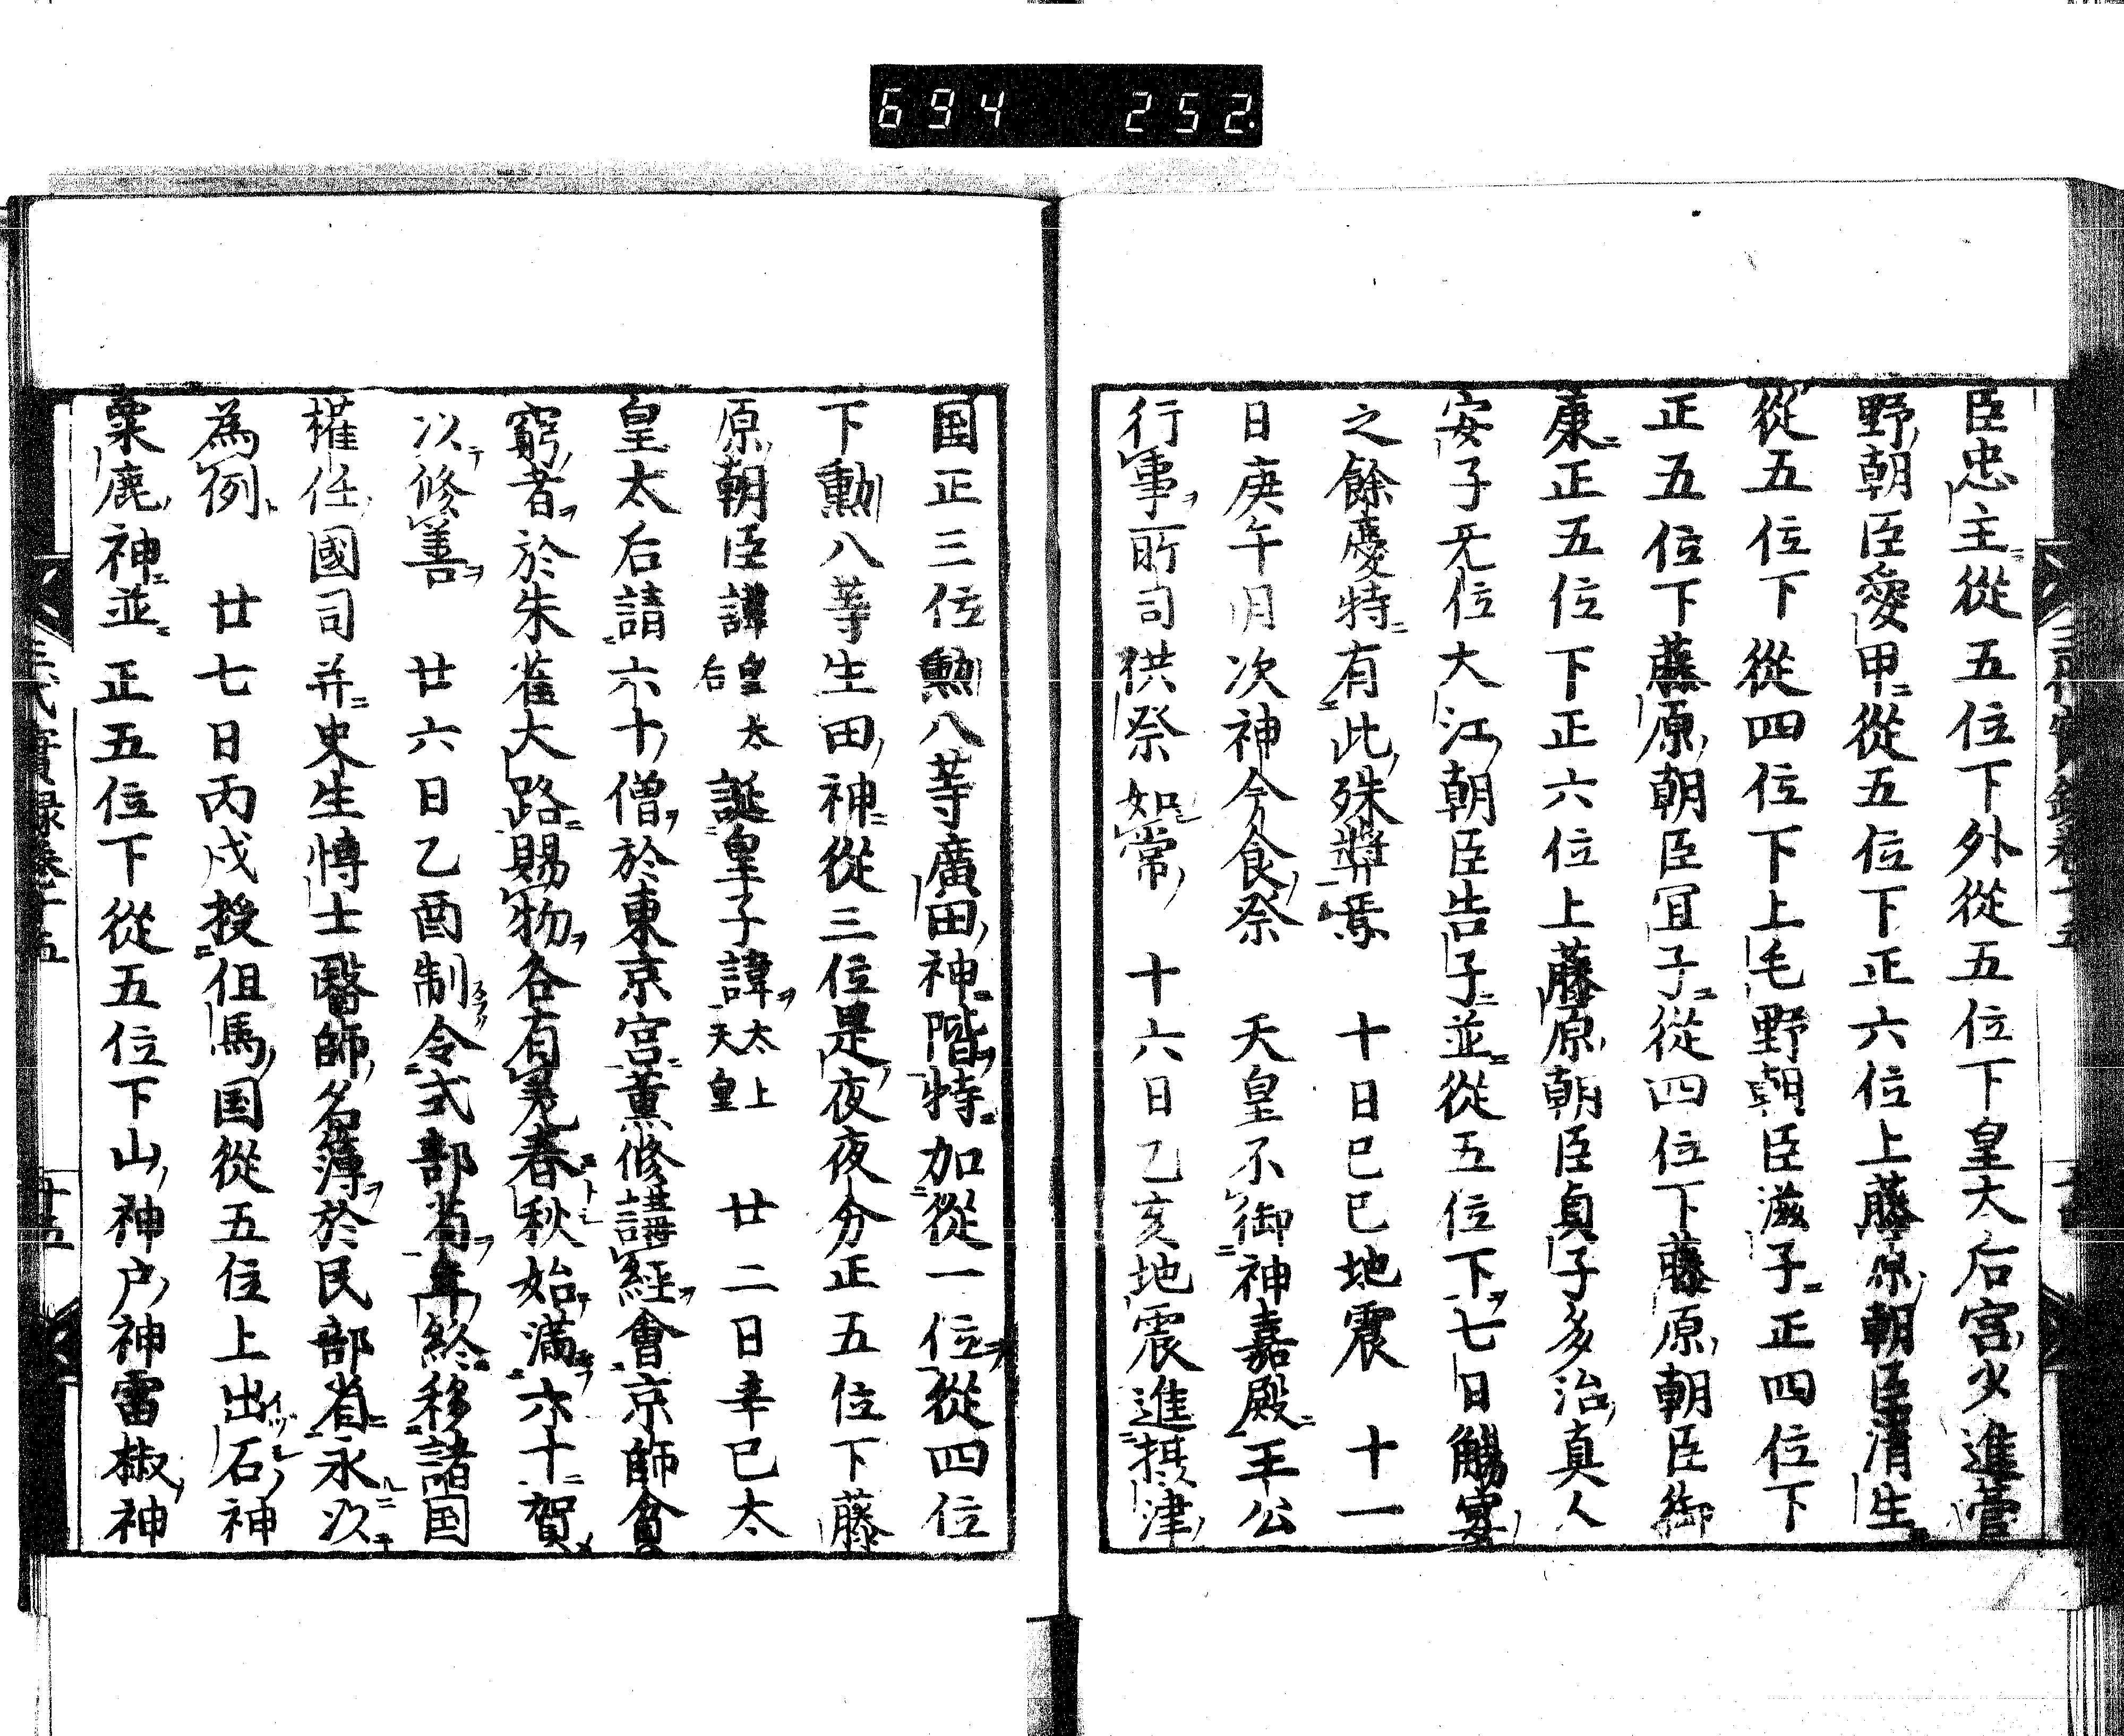 694 252.
臣忠主從五位下外從五位下皇大后宮少進菅
野朝臣愛甲從五位下正六位上藤原朝臣清生
從五位下從四位下上毛野朝臣滋子正四位下
正五位下藤原朝臣冝子從四位下藤原朝臣御
康正五位下正六位上藤原朝臣貞子多治真人
安子无位大江朝臣告子並從五位下七日觴宴
之餘慶特有此殊奬焉 十日巳巳地震 十一
日庚午月次神今食祭 天皇不御神嘉殿王公
行事所司供祭如常 十六日乙亥地震進摂津
国正三位勲八等廣田神階特加從一位從四位
下勳八等生田神從三位是夜夜分正五位下藤
原朝臣諱皇太后誕皇子諱太上天皇 廿二日辛巳太
皇太后請六十僧於東京宮薫修講經會京師貧
窮者於朱雀大路賜物各有差春秋始滿六十賀
以修善 廿六日乙酉制令式部省年終移諸国
権任國司并史生博士醫師名簿於民部省永以
為例 廿七日丙戌授但馬国從五位上出石神
粟鹿神並正五位下從五位下山神戸神雷椒神
三代實録卷十五